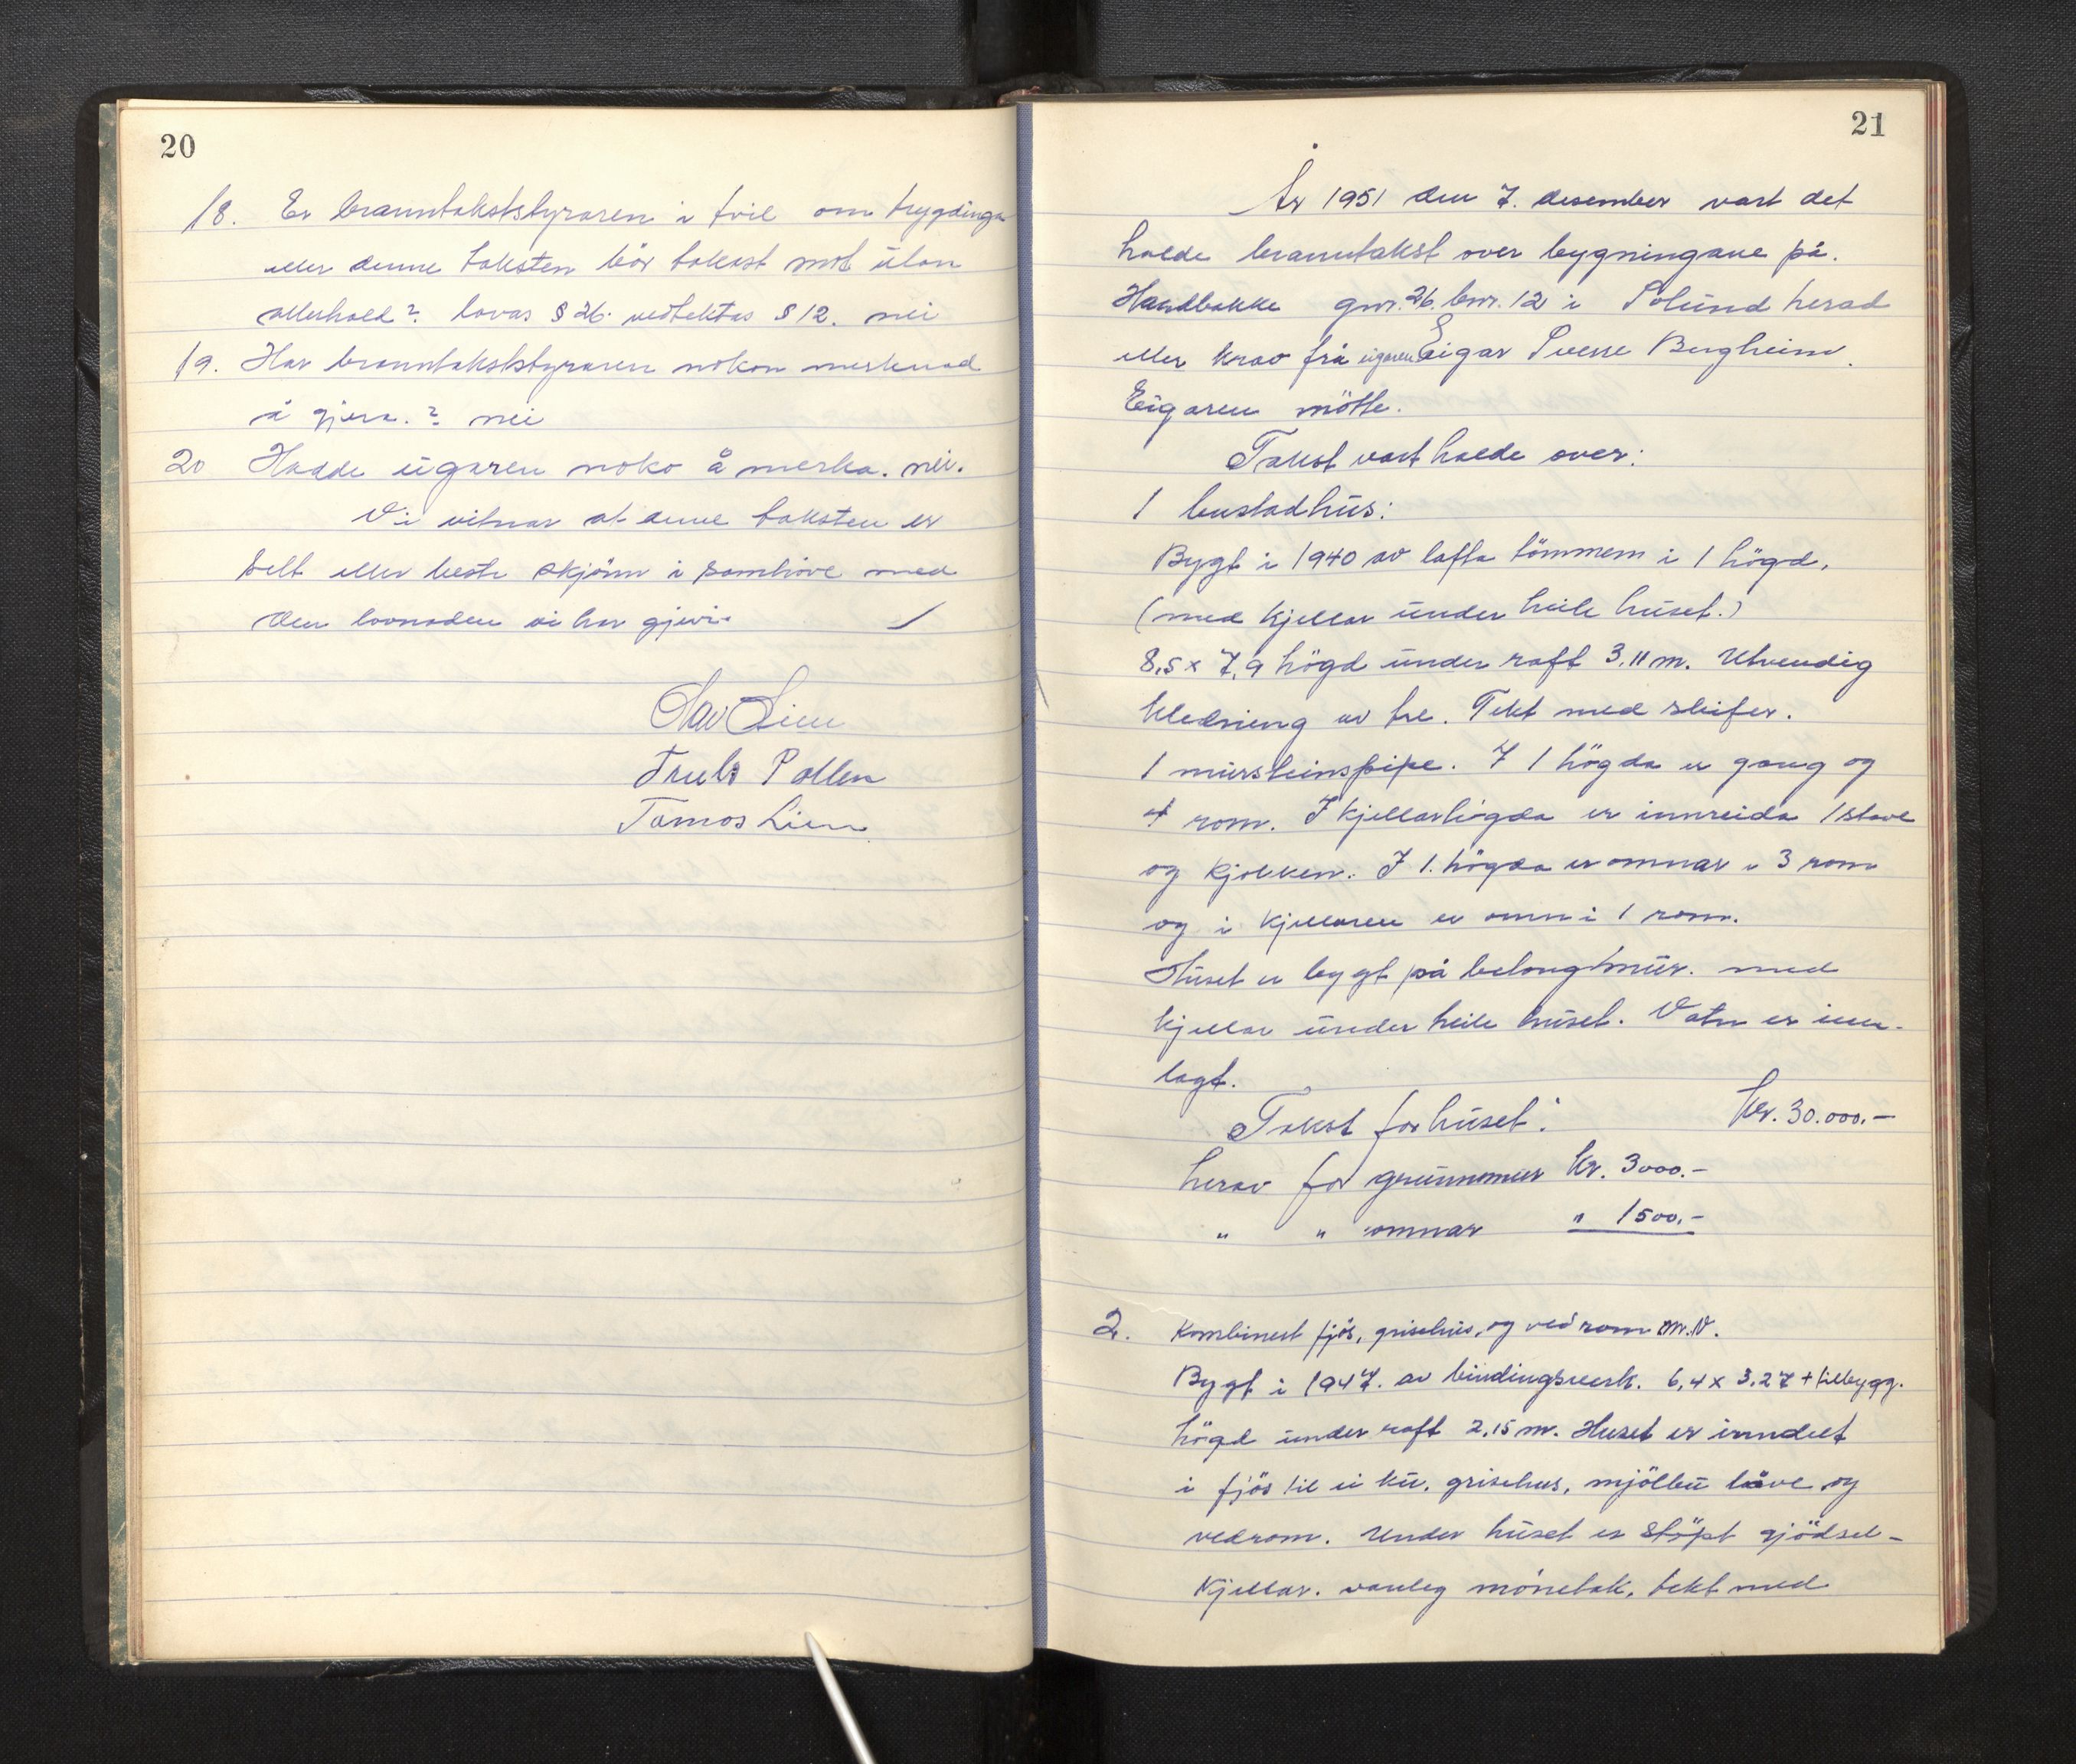 20
18. Er branntakststyraren i tvil om trygdinga
etter denne taksten bör takast mot utan
atterhald? lovas § 26. vedtektas § 12. nei
19. Har branntakststyraren nokon merknad
å gjera.? nei
20 Hadde eigaren noko å merka. nei.
Vi vitnar at denne taksten er
sett etter beste skjönn i samhöve med
den lovnaden vi har gjevi.
Olav Lien
Truls Pallen
Tomas Lien
21
År 1951 den 7. desember vart det
halde branntakst over bygningane på.
Handbakke gnr. 26. bnr. 12 i Solund herad
etter krav frå eigaren Eigar Sverre Bergheim.
Eigaren mötte.
Takst vart halde over:
1 bustadhus:
Bygt i 1940 av lafta tömmer i 1 högd,
(med kjellar under heile huset.)
8,5 x 7,9 högd under raft 3.11 m. Utvendig
kledning av tre. Tekt med skifer.
1 mursteinspipe. I 1 högda er gang og
4 rom. I kjellarhögda er innreida 1 stove
og kjöken. I 1. högda er omnar i 3 rom
og i kjellaren er omn i 1 rom.
Huset er bygt på betongmur. med
kjellar under heile huset. Vatn er inn-
lagt.
Takst for huset: Kr. 30.000.-
herav for grunnmur kr. 3000.-
" " omnar " 1500.-
2. Kombinert fjös, grisehus, og vedrom m.v.
Bygt i 1947. av bindingsverk. 6,4 x 3,27 + tilbygg.
högd under raft 2,15 m. Huset er inndelt
i fjös til ei ku. grisehus, mjölbu låve og
vedrom. Under huset er stöpt gjödsel-
kjellar. vanleg mönetak, tekt med